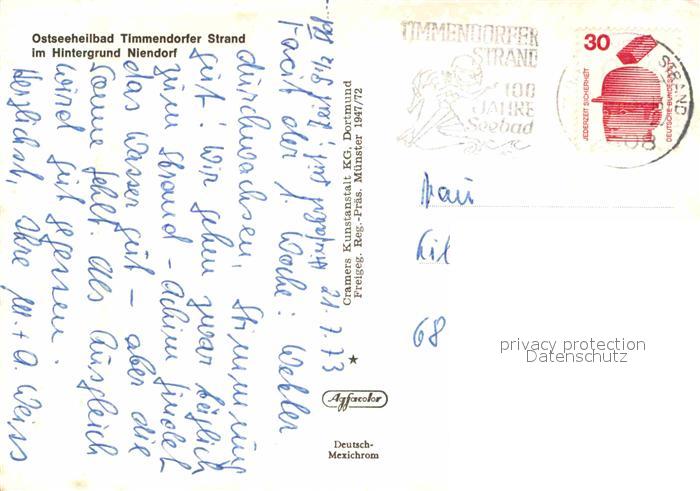 Ostseeheilbad Timmendorfer Strand
im Hintergrund Niendorf
21.7.73
Facit der 1. Woche: Wetter
durchwachsen, Stimmung
gut! Wir gehen zwar täglich
zum Strand - Achim findet
das Wasser gut - aber die
Sonne fehlt. Als Ausgleich
wird gut gegessen.
Herzlichst, Ihre M. + A. Weiss
Cramers Kunstanstalt KG, Dortmund
Freigeg. Reg.-Präs. Münster 1947/72
Agfacolor
Deutsch-
Mexichrom
TIMMENDORFER
STRAND
100
JAHRE
Seebad
30
JEDERZEIT SICHERHEIT
DEUTSCHE BUNDESPOST
STRAND
Frau
Kil
68
privacy protection
Datenschutz